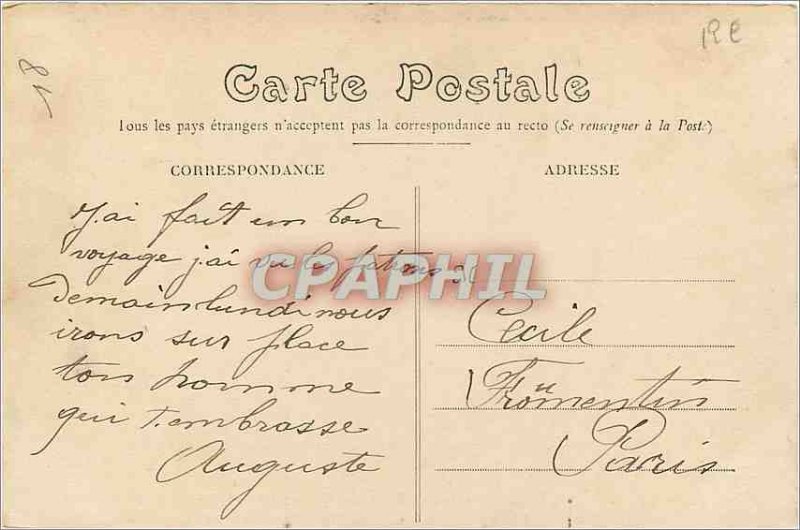 18
Carte Postale
Tous les pays étrangers n'acceptent pas la correspondance au recto (Se renseigner à la Poste)
CORRESPONDANCE
ADRESSE
J'ai fait un bon
voyage j'ai vu les
Demain lundi nous
irons sur place
ton homme
qui t'embrasse
Auguste
Cecile
Fromentin
Paris
CPAPHIL